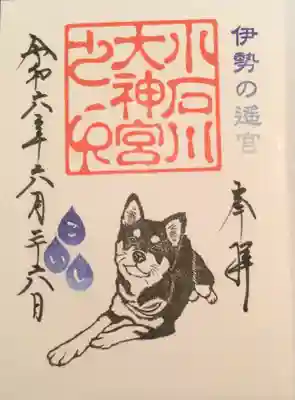 伊勢の遙宮
奉拝
小石川
大神宮
こいし
令和六年六月二十六日